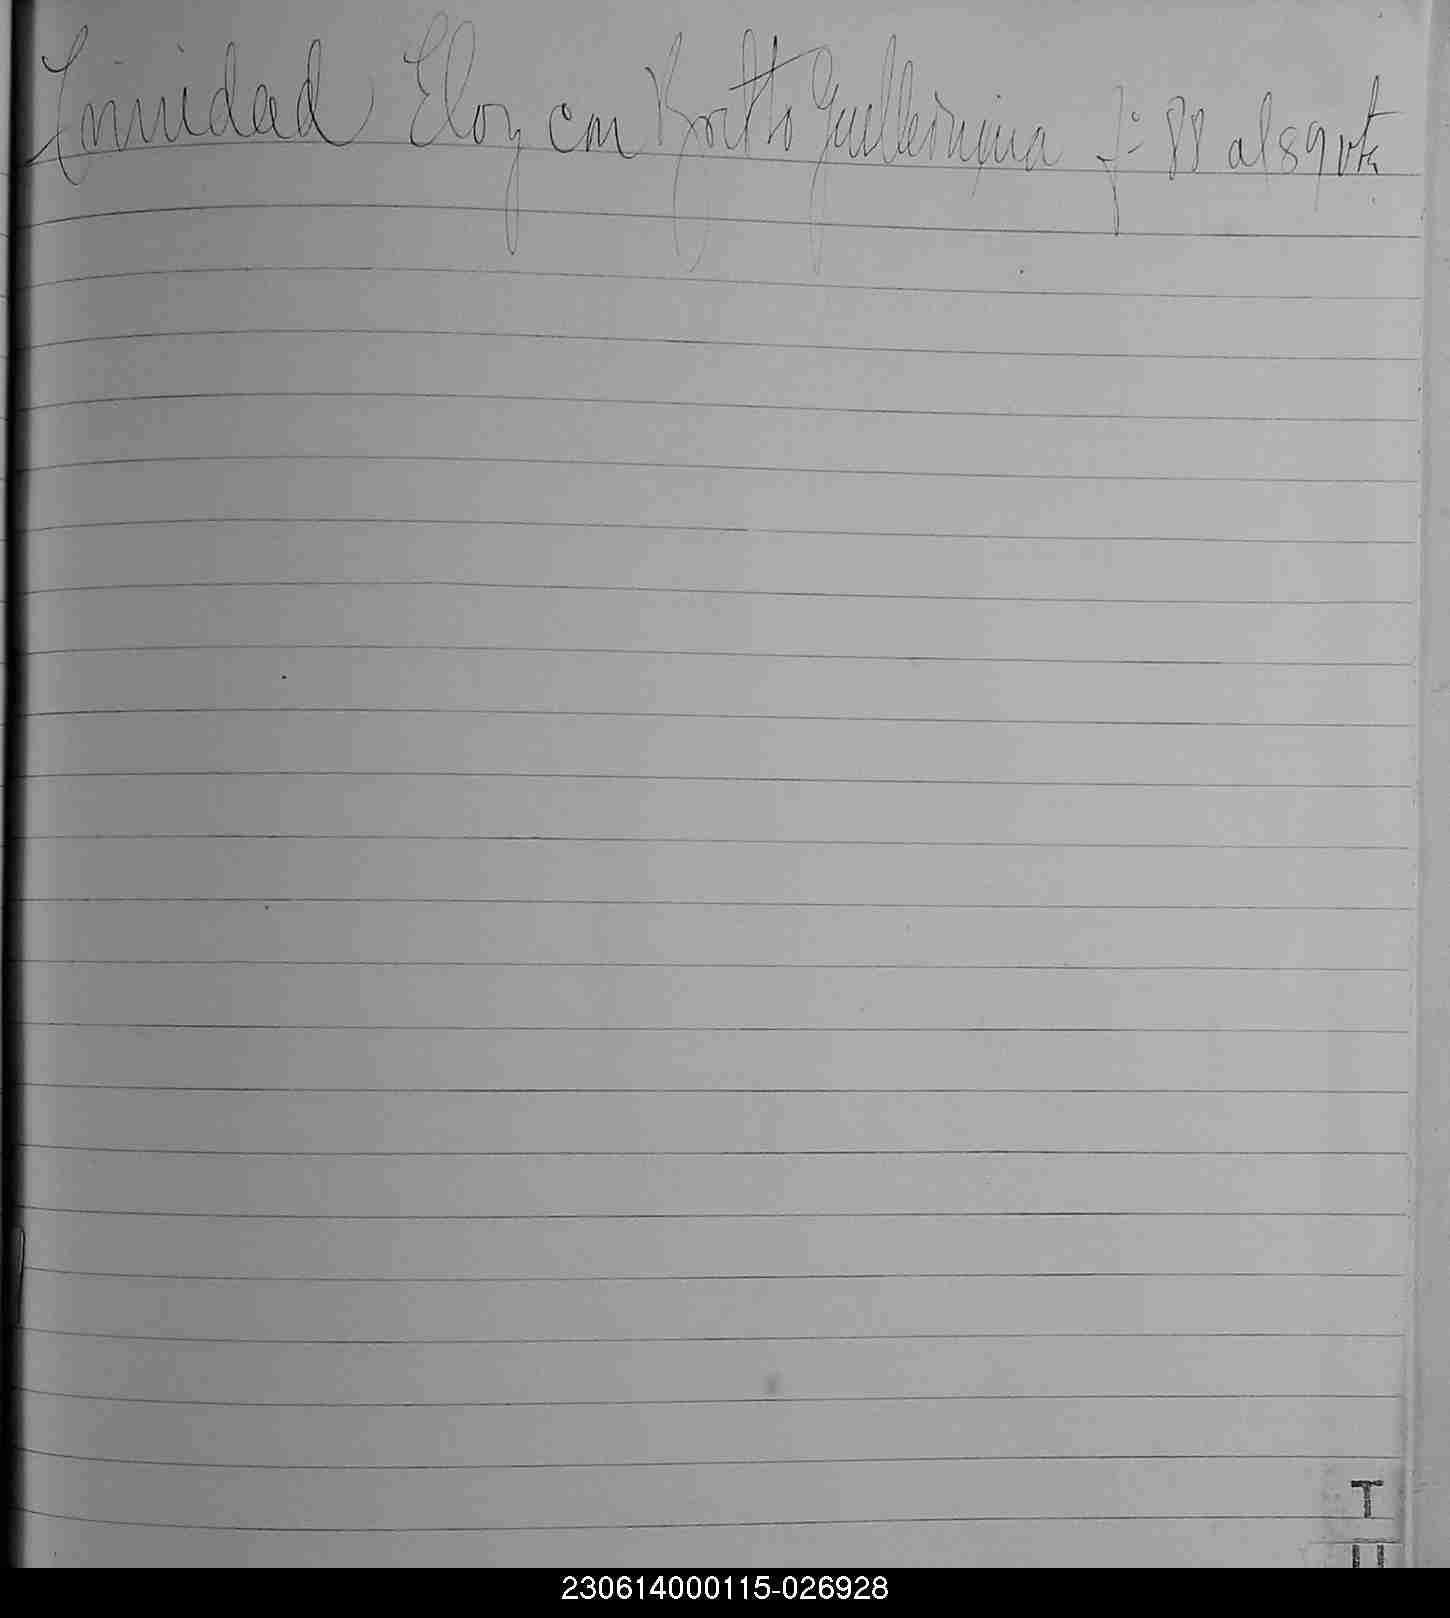 Trinidad Eloy con Guillermina f: 88 al 89 vta
T
U
230614000115-026928